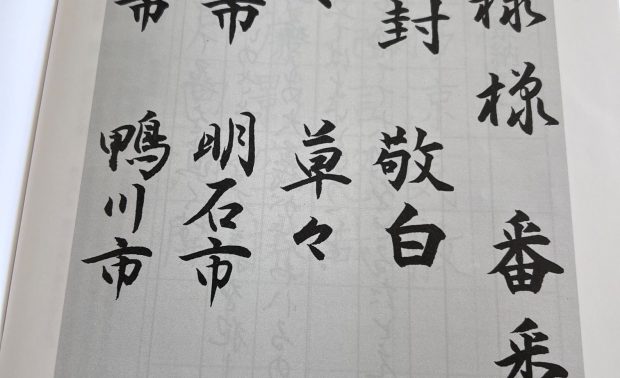 様様 番
封 敬白
草々
市 明石市
市 鴨川市